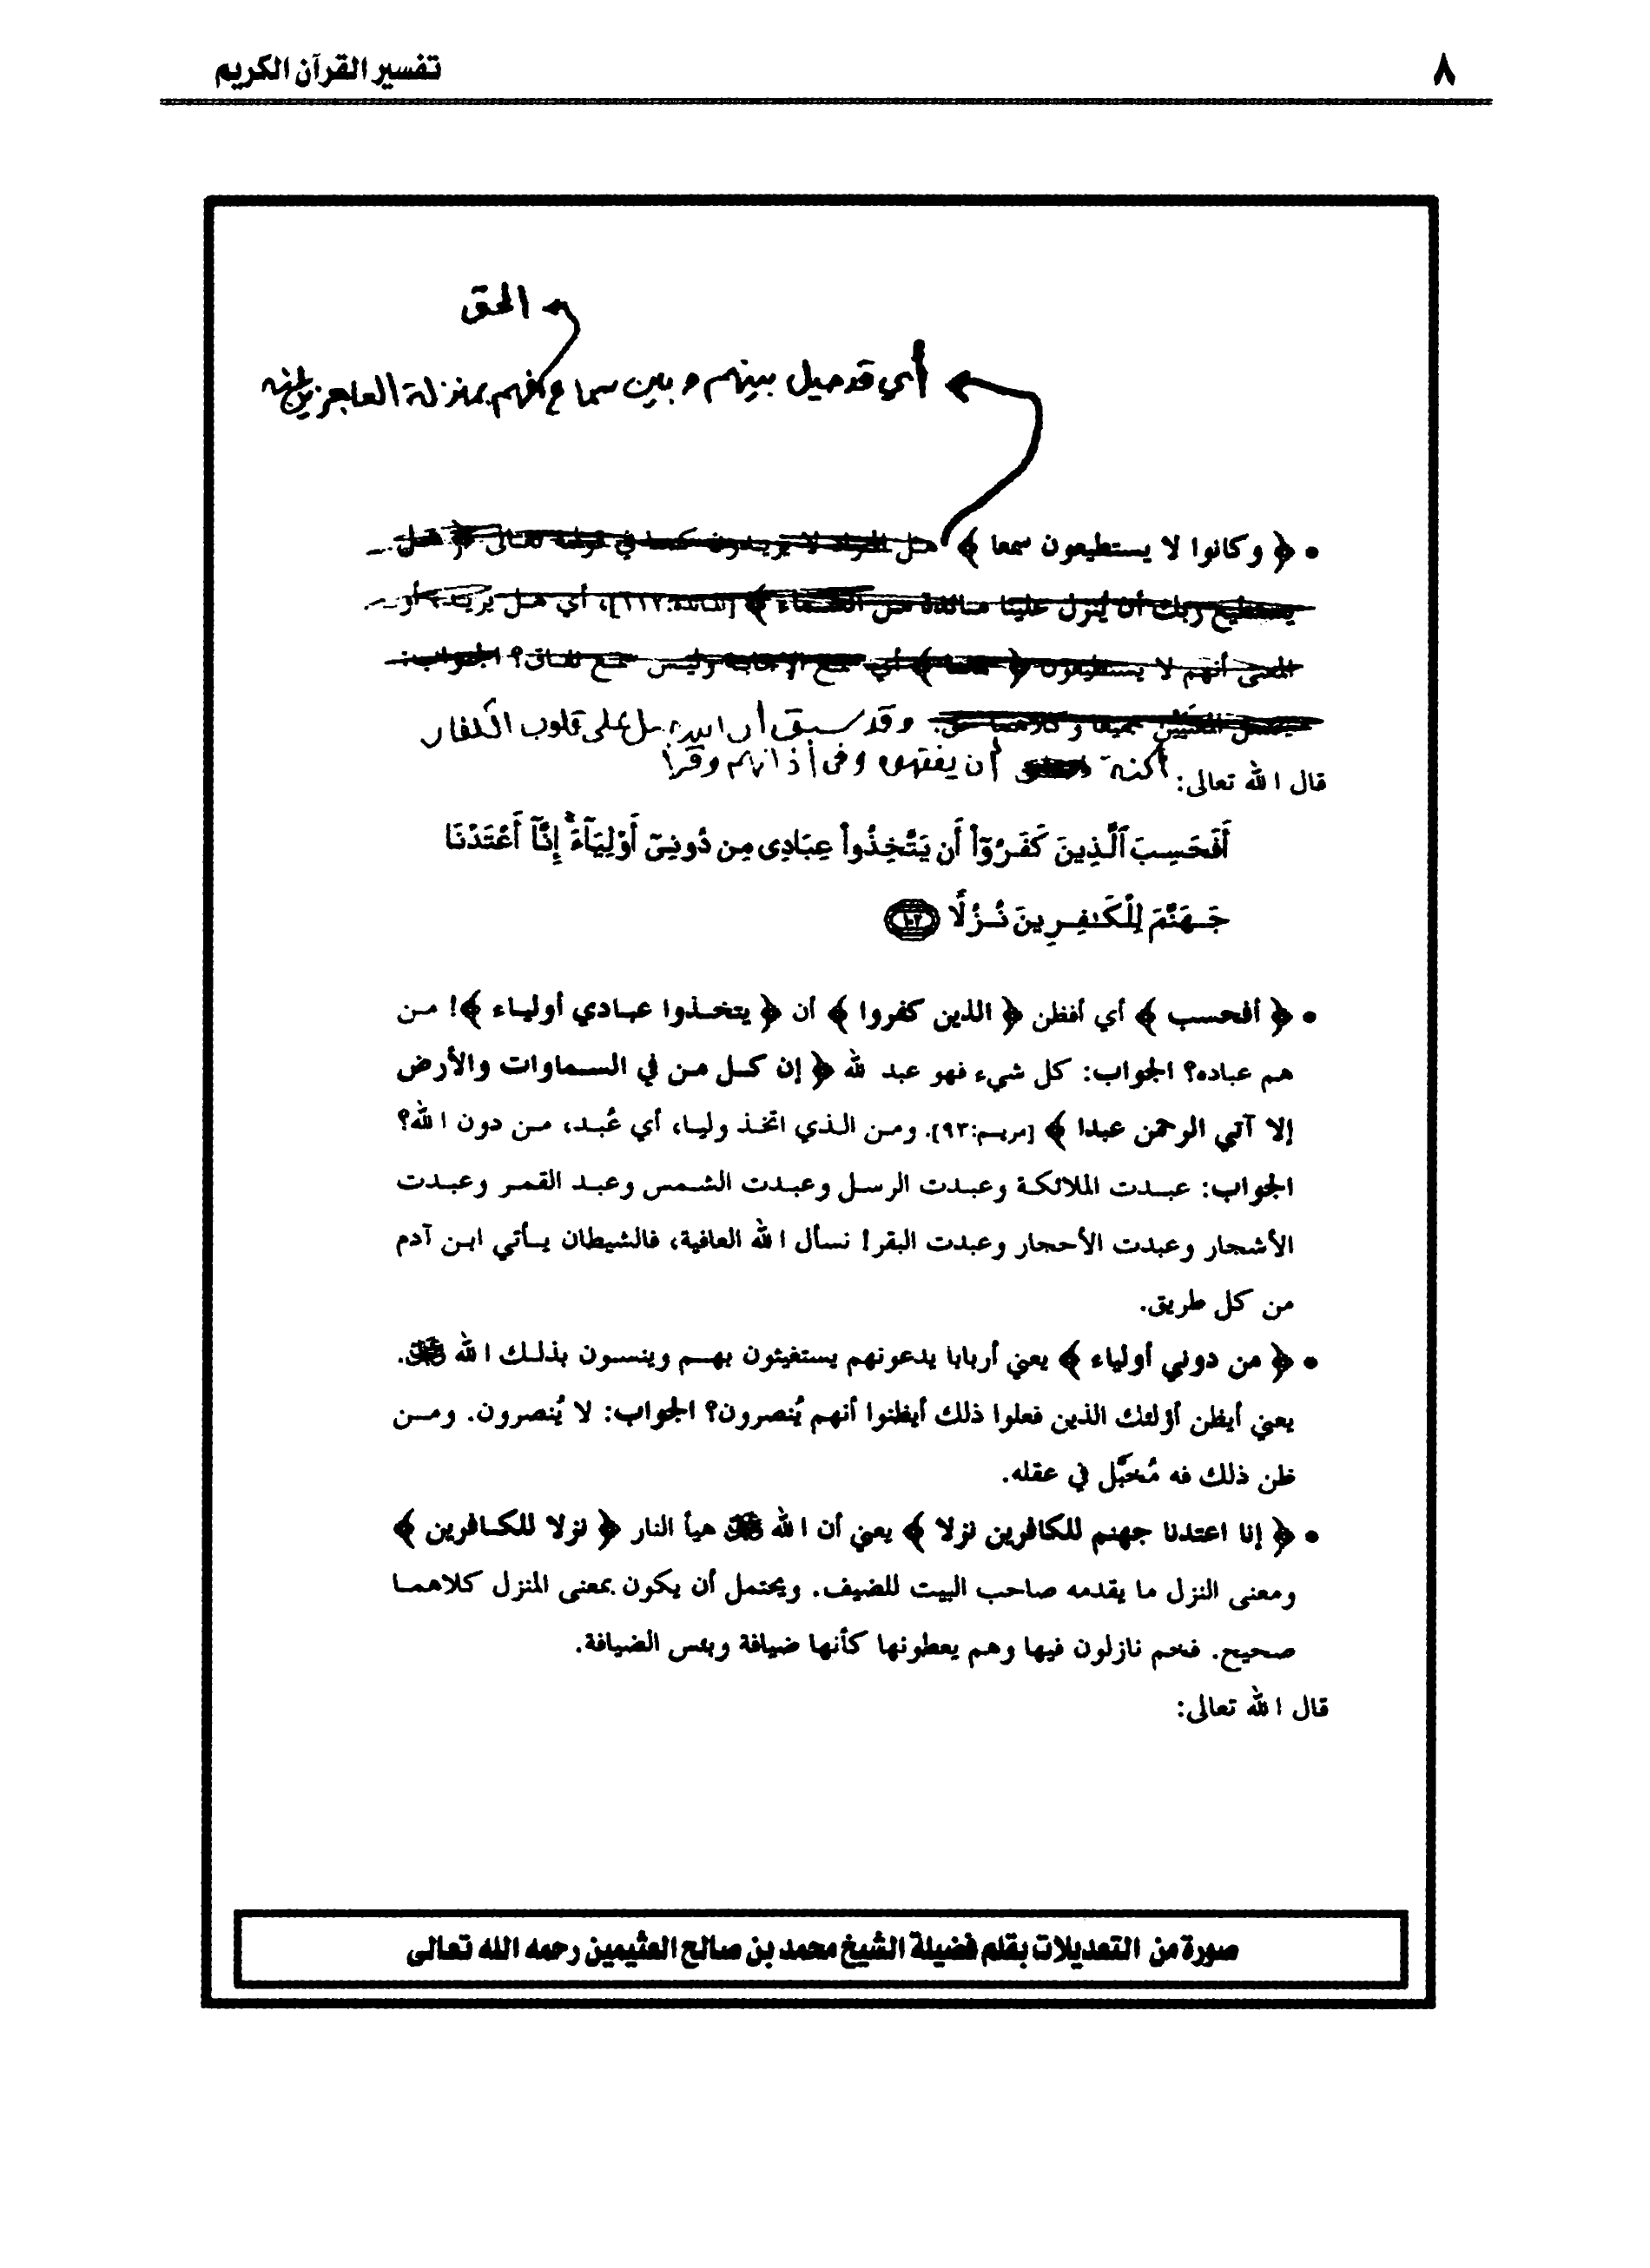 ٨
تفسير القرآن الكريم
الحق
أي قد حيل بينهم وبين سماع فهم بمنزلة العاجزين
• ﴿ وكانوا لا يستطيعون سمعا ﴾ هل المراد لا يريدون كما في قوله تعالى ﴿ هل
يستطيع ربك أن يُنزل علينا مائدة من السماء ﴾ [المائدة:١١٢]، أي هل يريد؟ أو
المعنى أنهم لا يستطيعون ﴿ سمعا ﴾ أي سمع الإجابة وليس سمع للساق؟ الجواب:
المعنيين جميعا وكلاهما حق. وقد سبق أن الله جعل على قلوب الكفار
أكنة أن يفقهوه وفي أذانهم وقرا
قال الله تعالى:
أَفَحَسِبَ ٱلَّذِينَ كَفَرُوٓا۟ أَن يَتَّخِذُوا۟ عِبَادِى مِن دُونِىٓ أَوْلِيَآءَ ۚ إِنَّآ أَعْتَدْنَا
جَهَنَّمَ لِلْكَـٰفِرِينَ نُزُلًا ١٠٢
• ﴿ أفحسب ﴾ أي أفظن ﴿ الذين كفروا ﴾ أن ﴿ يتخذوا عبادي أولياء ﴾! من
هم عباده؟ الجواب: كل شيء فهو عبد لله ﴿ إن كل من في السماوات والأرض
إلا آتي الرحمن عبدا ﴾ [مريم:٩٣]. ومن الذي اتخذ وليا، أي عُبد، من دون الله؟
الجواب: عبدت الملائكة وعبدت الرسل وعبدت الشمس وعبد القمر وعبدت
الأشجار وعبدت الأحجار وعبدت البقر! نسأل الله العافية، فالشيطان يأتي ابن آدم
من كل طريق.
• ﴿ من دوني أولياء ﴾ يعني أربابا يدعونهم يستغيثون بهم وينسون بذلك الله ﷻ.
يعني أيظن أؤلئك الذين فعلوا ذلك أيظنوا أنهم يُنصرون؟ الجواب: لا يُنصرون. ومن
ظن ذلك فه مُخبَّل في عقله.
• ﴿ إنا اعتدنا جهنم للكافرين نزلا ﴾ يعني أن الله ﷻ هيأ النار ﴿ نزلا للكافرين ﴾
ومعنى النزل ما يقدمه صاحب البيت للضيف. ويحتمل أن يكون بمعنى المنزل كلاهما
صحيح. فخم نازلون فيها وهم يعطونها كأنها ضيافة وبئس الضيافة.
قال الله تعالى:
صورة من التعديلات بقلم فضيلة الشيخ محمد بن صالح العثيمين رحمه الله تعالى